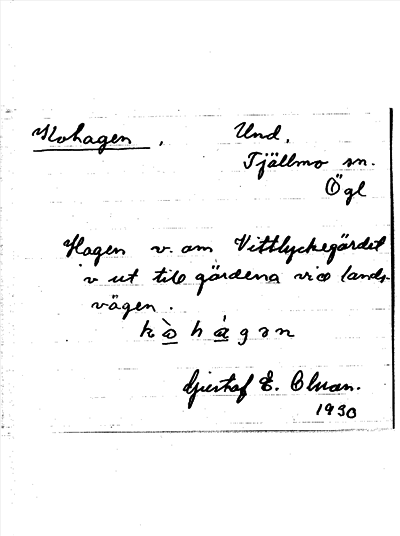 Kohagen, Und.
Tjällmo sn.
Ögl
Hagen v. om Vittlyckegärdet
v ut till gärdena vid lands-
vägen.
kòhágən
Gustaf E. Olsson.
1930